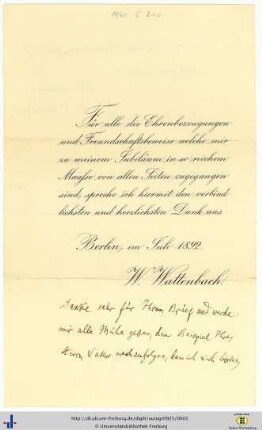 Für alle die Ehrenbezeugungen
und Freundschaftsbeweise welche mir
zu meinem Jubiläum in so reichem
Maaſse von allen Seiten zugegangen
sind, spreche ich hiermit den verbind
lichsten und herzlichsten Dank aus
Berlin, im Juli 1892.
W. Wattenbach.
Danke sehr für Ihren Brief und werde
mir alle Mühe geben, dem Beispiel Ihres
Herrn Vaters nachzufolgen,
© Universitätsbibliothek Freiburg